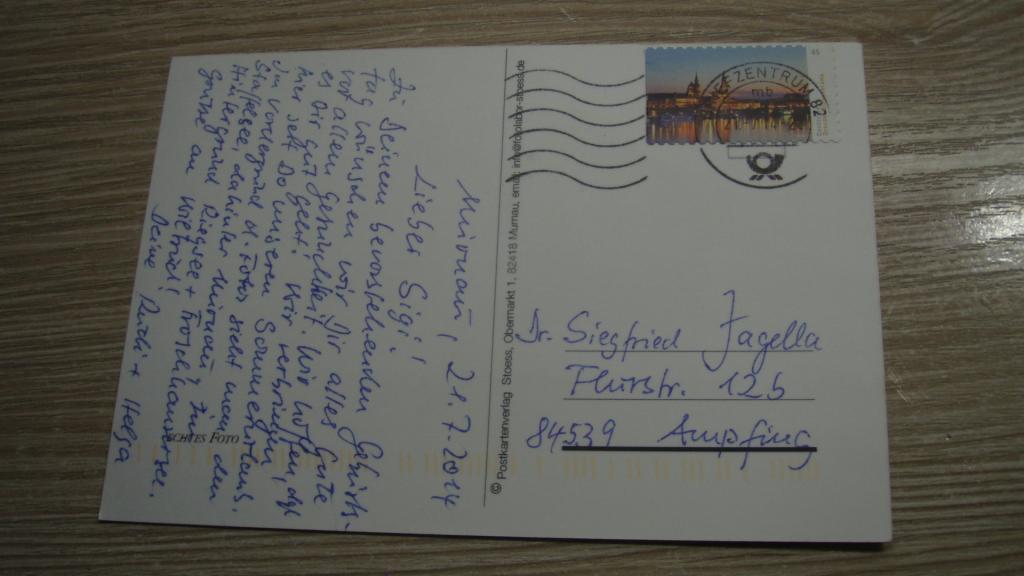 Murnau, 21.7.2014
Lieber Sigi!
Zu Deinem bevorstehenden Geburts-
tag wünschen wir Dir alles Gute
vor allem Gesundheit. Wir hoffen, daß
es Dir gut geht! Wir verbringen
hier seit Do unseren Sommerurlaub.
Im Vordergrund d. Fotos sieht man den
Staffelsee, dahinter Murnau, im
Hintergrund Riegsee + Froschhausersee.
Grüße an Wiltrud!
Deine Rudi + Helga
ECHTES FOTO
© Postkartenverlag Stoess, Obermarkt 1, 82418 Murnau, email: info@fotolabor-stoess.de
45
BRIEFZENTRUM 82
mb
Dr. Siegfried Jagella
Flurstr. 12b
84539 Ampfing